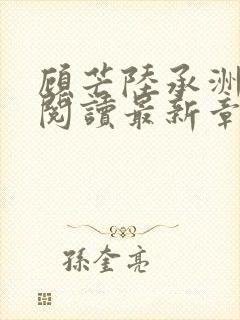 顧茫陸承洲
閱讀最新章
孫奎亮